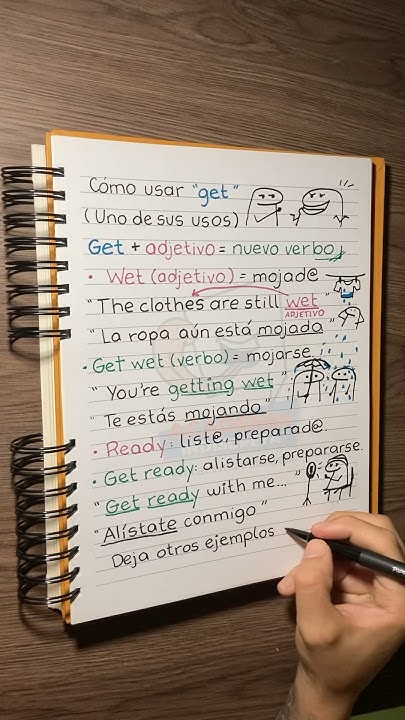 Cómo usar "get"
(Uno de sus usos)
Get + adjetivo = nuevo verbo
• Wet (adjetivo) = mojad@
"The clothes are still wet"
ADJETIVO
"La ropa aún está mojada"
• Get wet (verbo) = mojarse
"You're getting wet"
"Te estás mojando"
• Ready: list@, preparad@.
• Get ready: alistarse, prepararse.
"Get ready with me..."
"Alístate conmigo"
Deja otros ejemplos